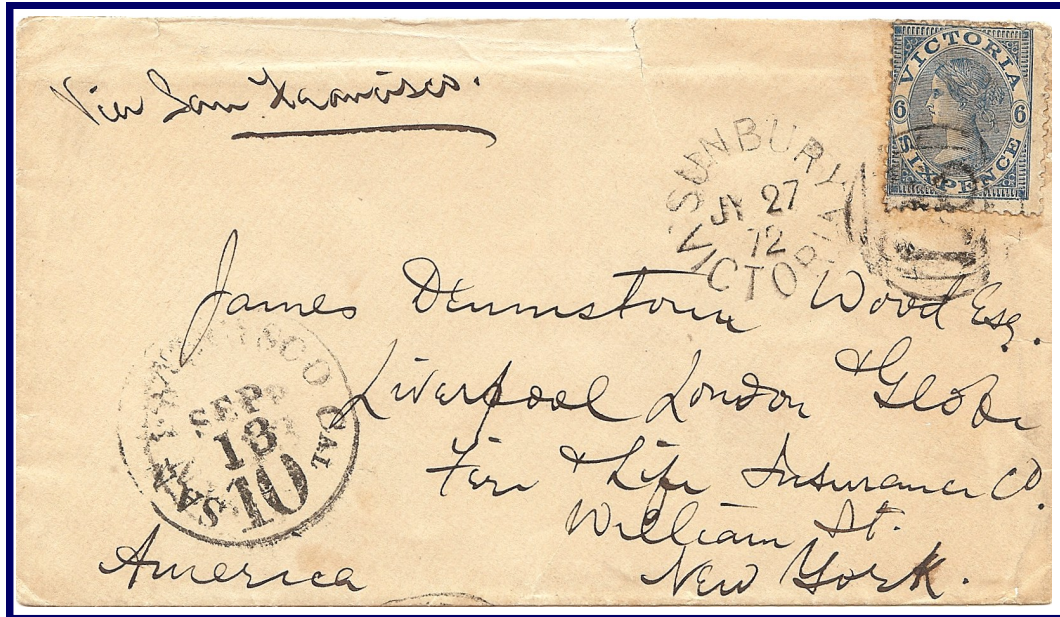 Via San Francisco.
VICTORIA
6 6
SIX PENCE
SUNBURY
JY 27
72
VICTORIA
James Dennistoun Wood Esq.
Liverpool London & Globe
Fire & Life Insurance Co.
William St.
New York.
America
SAN FRANCISCO CAL
SEP
13
10